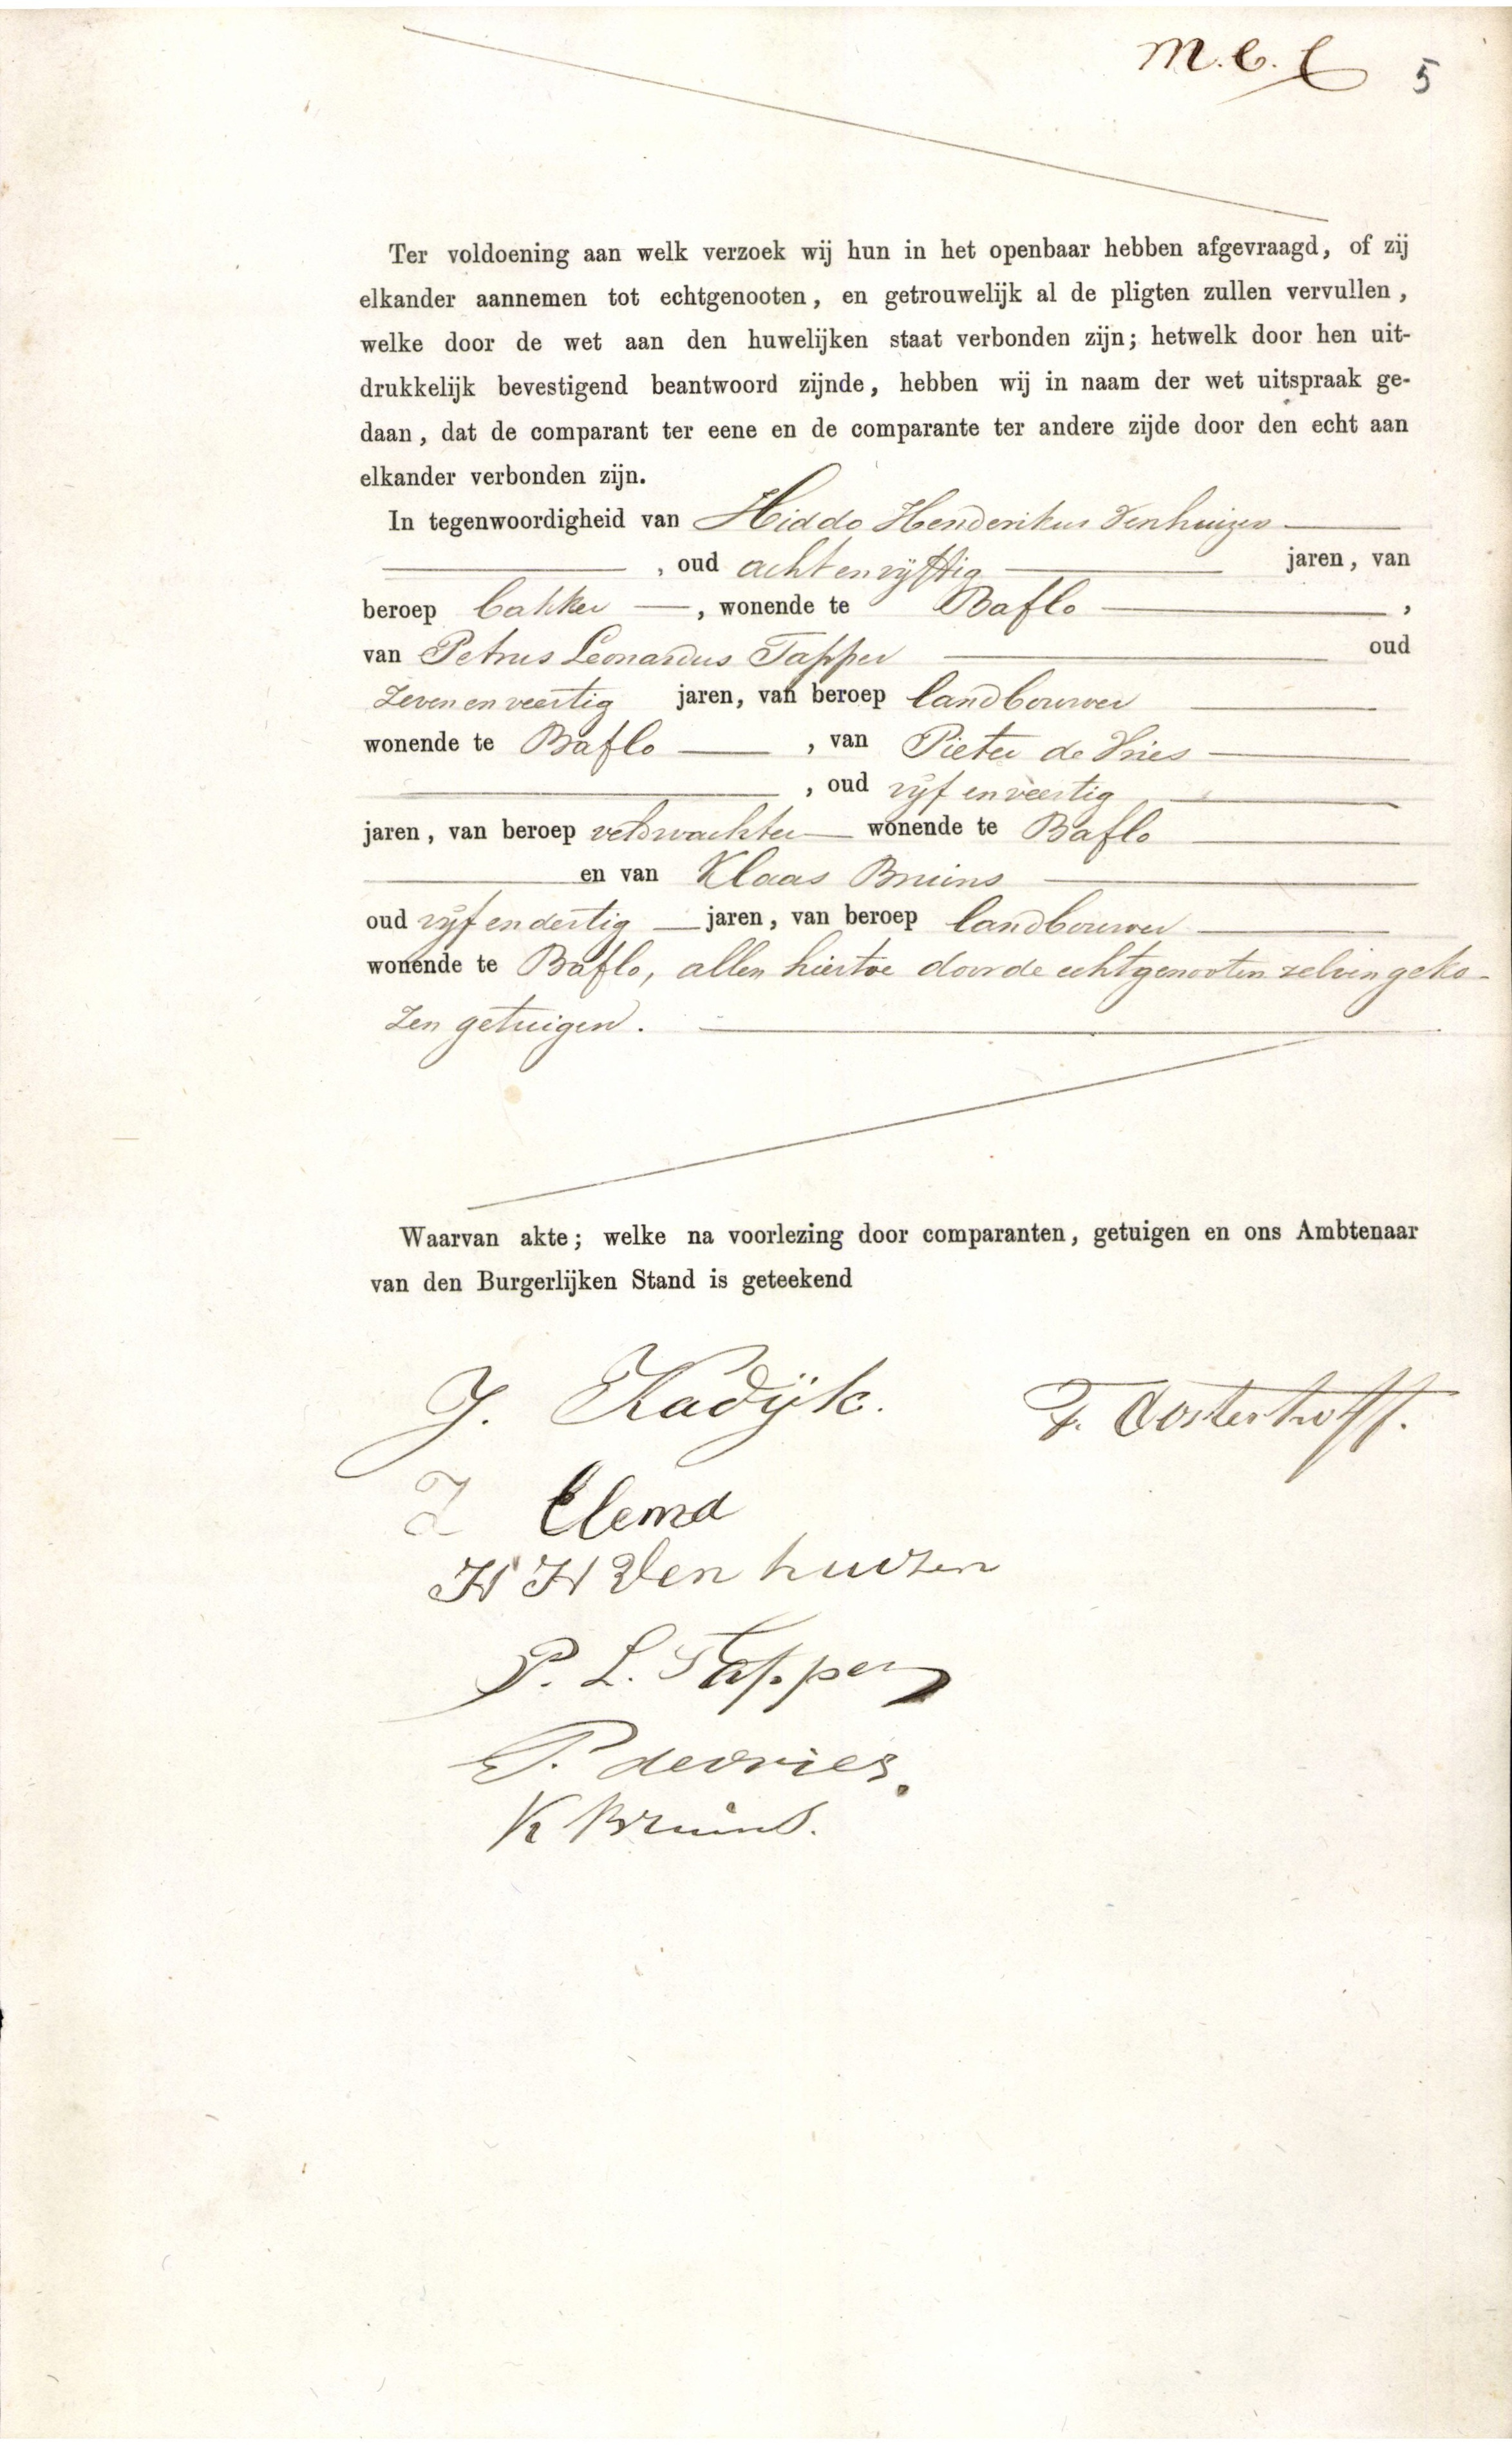 5
Ter voldoening aan welk verzoek wij hun in het openbaar hebben afgevraagd, of zij
elkander aannemen tot echtgenooten, en getrouwelijk al de pligten zullen vervullen,
welke door de wet aan den huwelijken staat verbonden zijn; hetwelk door hen uit-
drukkelijk bevestigend beantwoord zijnde, hebben wij in naam der wet uitspraak ge-
daan, dat de comparant ter eene en de comparante ter andere zijde door den echt aan
elkander verbonden zijn.
In tegenwoordigheid van Hiddo Henderikus Venhuizen
, oud acht en vijftig jaren, van
beroep bakker, wonende te Baflo,
van Petrus Leonardus Tapper oud
zeven en veertig jaren, van beroep landbouwer
wonende te Baflo, van Pieter de Vries
, oud vijf en veertig
jaren, van beroep veldwachter wonende te Baflo
en van Klaas Bruins
oud vijf en dertig jaren, van beroep landbouwer
wonende te Baflo, allen hiertoe door de echtgenooten zelven geko-
zen getuigen.
Waarvan akte; welke na voorlezing door comparanten, getuigen en ons Ambtenaar
van den Burgerlijken Stand is geteekend
J. Kadijk. F. Oosterhoff.
Clema
H H Venhuizen
P. L. Tapper
P. de vries.
K Bruins.